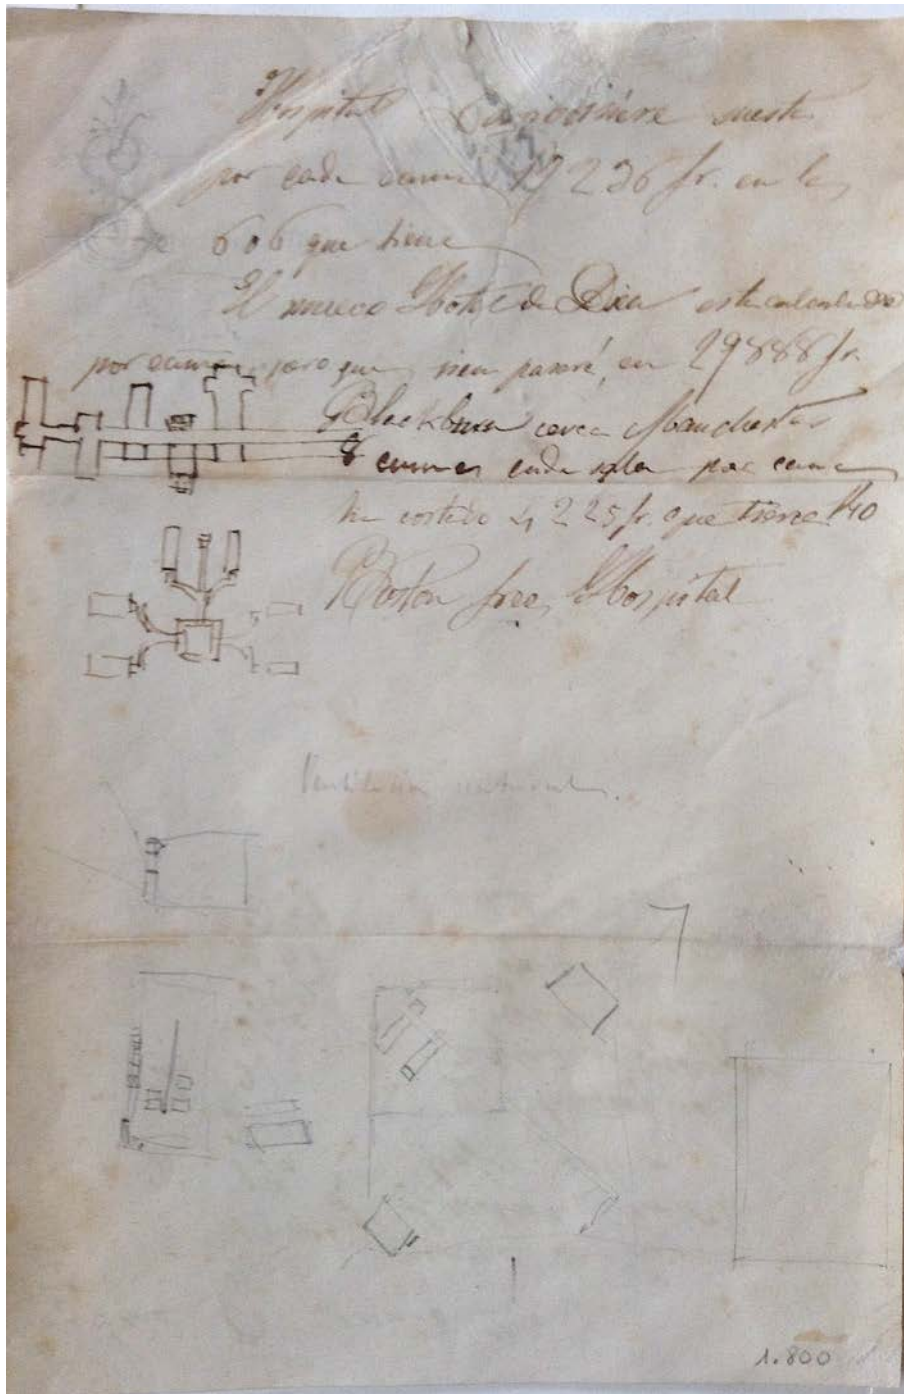 Hospital Lariboisière cuesta
por cada cama 17236 fr. en las
606 que tiene
El nuevo Hotel de Dieu esta calculado
por cama, para que sean, en 29888 fr.
Blackburn cerca Manchester
8 camas cada sala por cama
ha costado 4225 fr. que tiene
Boston free Hospital
Ventilacion natural.
1.800